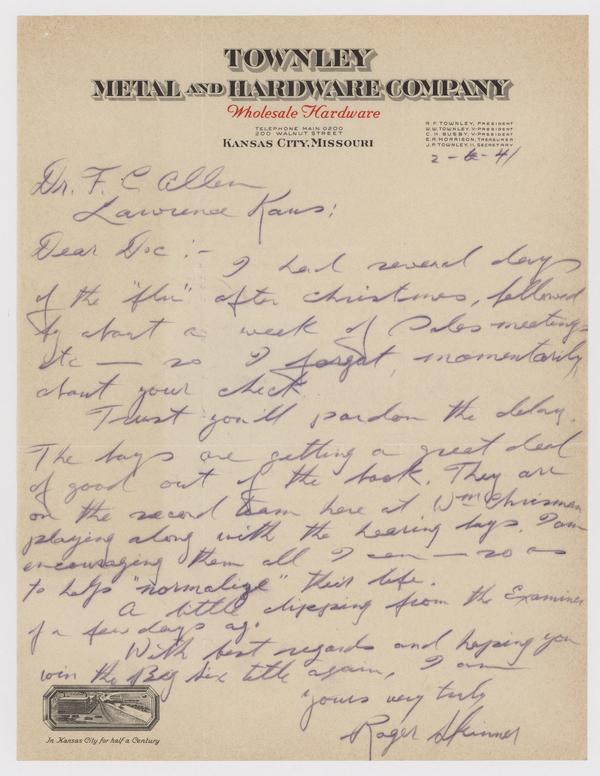 TOWNLEY
METAL AND HARDWARE COMPANY
Wholesale Hardware
TELEPHONE MAIN 0200
200 WALNUT STREET
KANSAS CITY, MISSOURI
R. P. TOWNLEY, PRESIDENT
W. W. TOWNLEY, V-PRESIDENT
C. H. BUSBY, V-PRESIDENT
E. R. MORRISON, TREASURER
J. P. TOWNLEY, II, SECRETARY
2-6-41
Dr. F. C Allen
Lawrence Kans;
Dear Doc :-
I had several days
of the "flu" after christmas, followed
by about a week of Sales meetings
etc — so I forgot, momentarily
about your check
Trust you'll pardon the delay.
The boys are getting a great deal
of good out of the book. They are
on the second team here at Wm Chrisman
playing along with the hearing boys. I am
encouraging them all I can — so as
to help "normalize" their life.
A little clipping from the Examiner
of a few days ago.
With best regards and hoping you
win the Big Six title again, I am
Yours very truly
Roger Skinner
In Kansas City for half a Century